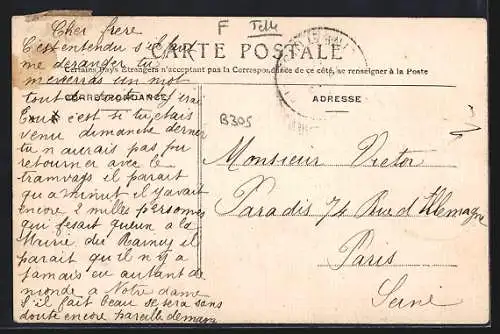 F Tell
Cher frere
CARTE POSTALE
Certains Pays Etrangers n'acceptant pas la Correspondance de ce côté, se renseigner à la Poste
CORRESPONDANCE
ADRESSE
C'est entendu s'il faut
me deranger tu
m'enverras un mot
tout de suite et j'irai
c'est si tu étais
venu dimanche dernier
tu n'aurais pas pu
retourner avec le
tramways il parait
qu'a minuit il y avait
encore 2 milles personnes
qui fesait queue a la
Mairie du Raincy il
parait qu'il n'y a
jamais eu autant de
monde a Notre dame
s'il fait beau se sera sans
doute encore pareille demain
B305
Monsieur Victor
Paradis 74 Rue d'Allemagne
Paris
Seine